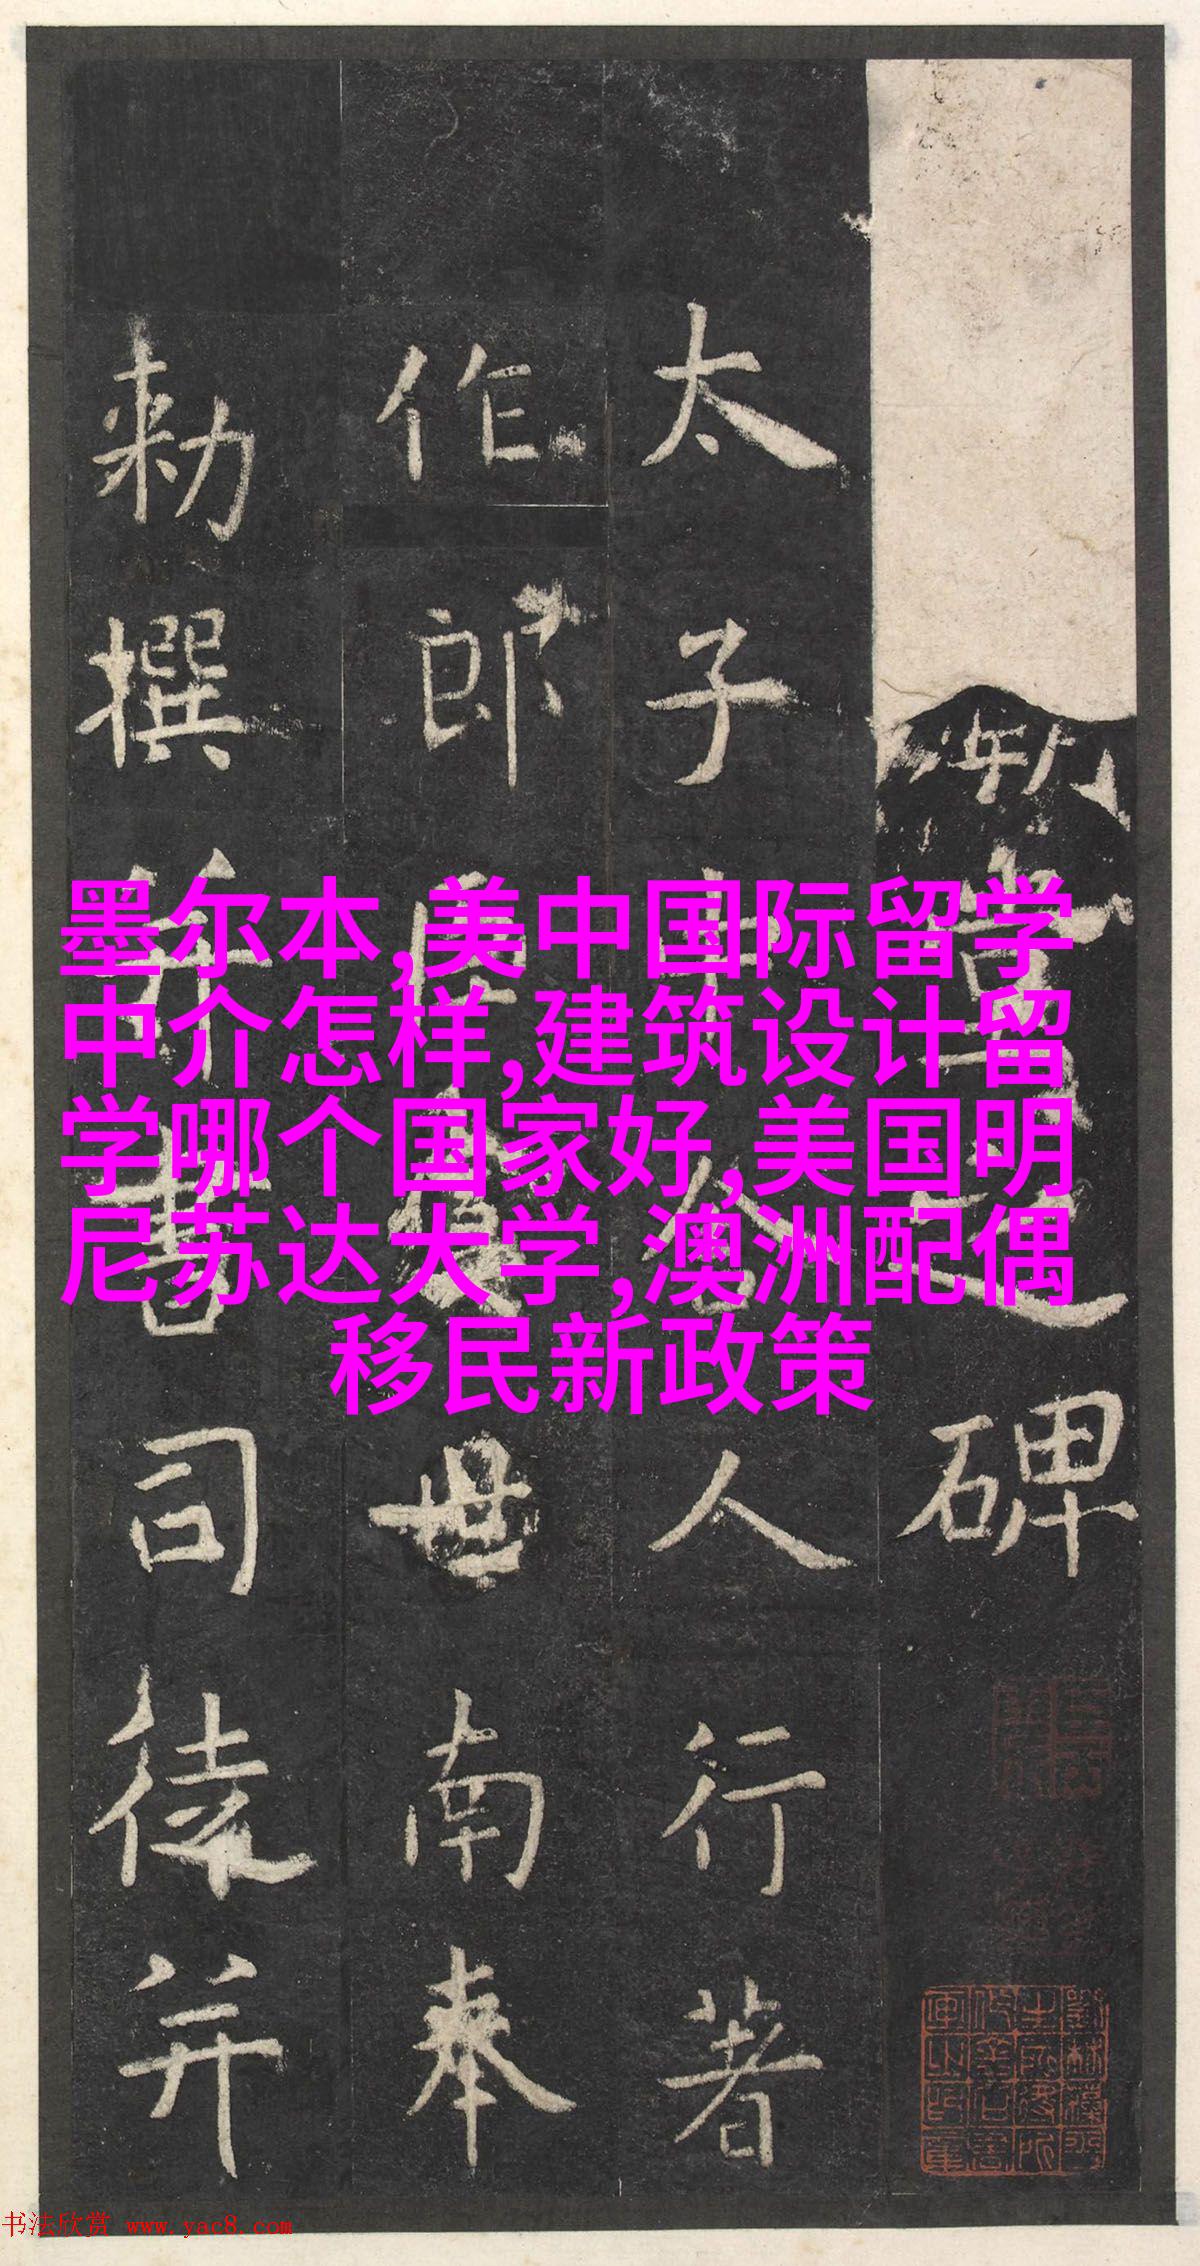 碑
太子中舍人行著
作郎臣虞世南奉
勅撰并書司徒并
墨尔本,美中国际留学
中介怎样,建筑设计留
学哪个国家好,美国明
尼苏达大学,澳洲配偶
移民新政策
书法欣赏 www.yac8.com